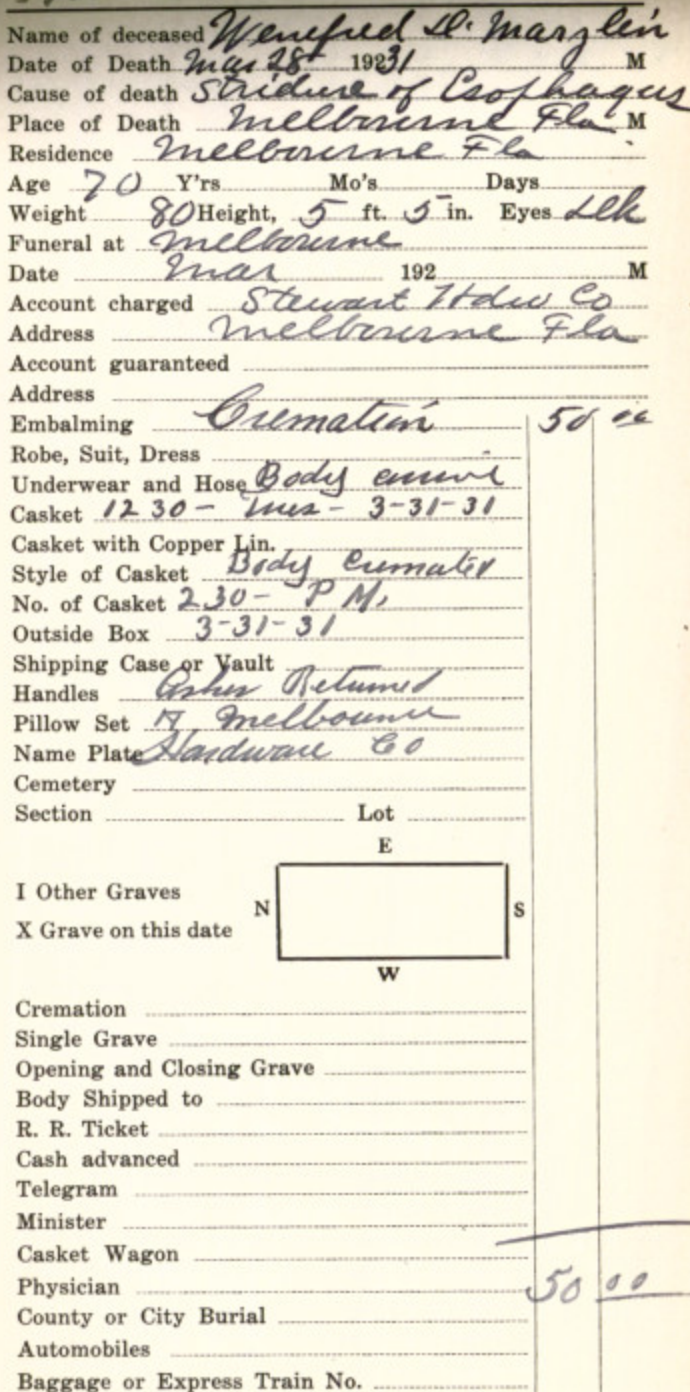 Name of deceased Wenefred D. Marzlin
Date of Death Mar 28 19231 M
Cause of death Stridure of Esophagus
Place of Death Melbourne Fla M
Residence Melbourne Fla
Age 70 Y'rs Mo's Days
Weight 80 Height, 5 ft. 5 in. Eyes
Funeral at Melbourne
Date Mar 192 M
Account charged Stewart Hdw Co
Address Melbourne Fla
Account guaranteed
Address
Embalming Cremation 50 00
Robe, Suit, Dress
Underwear and Hose Body
Casket 12 30 - Tues - 3-31-31
Casket with Copper Lin.
Style of Casket Body Cremated
No. of Casket 2 30 - P M.
Outside Box 3-31-31
Shipping Case or Vault
Handles Ashes Returned
Pillow Set Melbourne
Name Plate Hardware Co
Cemetery
Section Lot
E
I Other Graves
N S
X Grave on this date
W
Cremation
Single Grave
Opening and Closing Grave
Body Shipped to
R. R. Ticket
Cash advanced
Telegram
Minister
Casket Wagon
Physician 50 00
County or City Burial
Automobiles
Baggage or Express Train No.